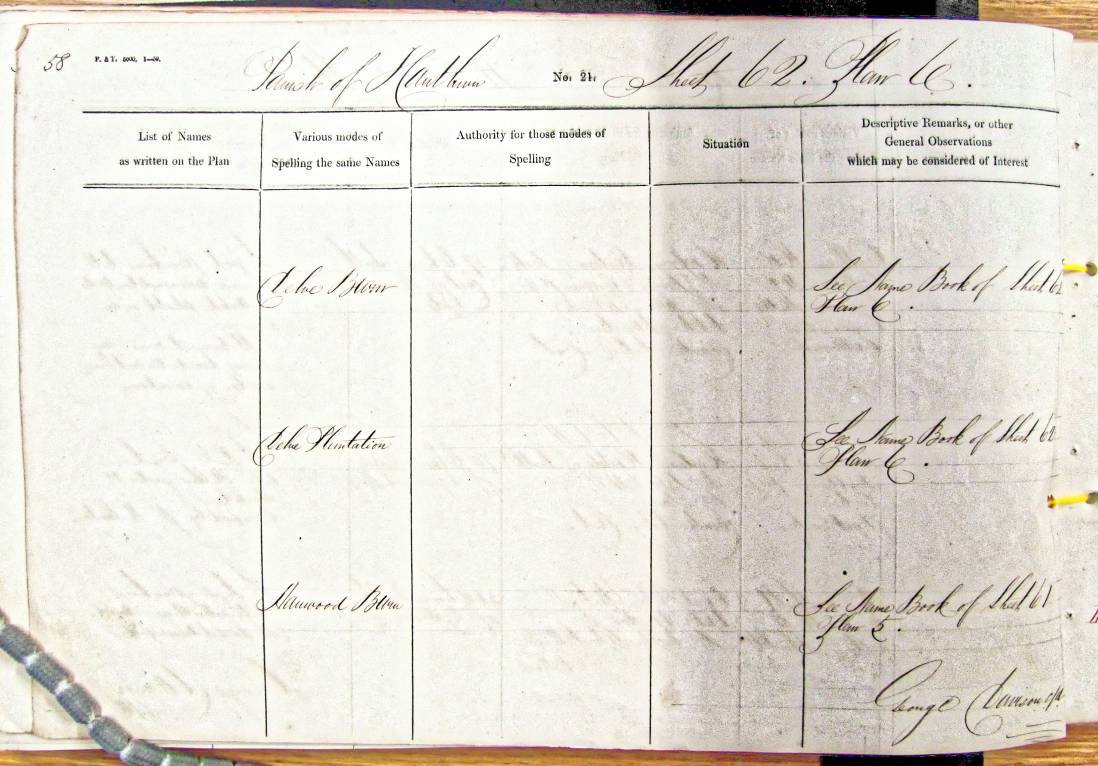 58
F. & T. 5000, 1—59.
Parish of No. 21. Sheet 62. Plan 6.
List of Names
as written on the Plan
Various modes of
Spelling the same Names
Authority for those modes of
Spelling
Situation
Descriptive Remarks, or other
General Observations
which may be considered of Interest
Burn
See Name Book of Sheet 62
Plan 6.
Plantation
See Name Book of Sheet 62
Plan 6.
Harwood Burn
See Name Book of Sheet 61
Plan 5.
George Davison